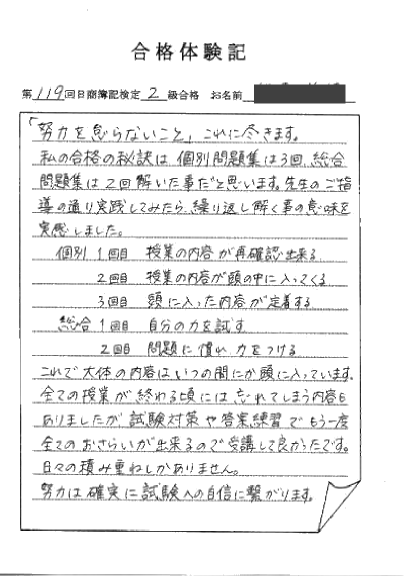 合格体験記
第119回日商簿記検定 2 級合格 お名前
「努力を怠らないこと」これに尽きます。
私の合格の秘訣は、個別問題集は3回、総合
問題集は2回解いた事だと思います。先生のご指
導の通り実践してみたら、繰り返し解く事の意味を
実感しました。
個別 1回目 授業の内容が再確認出来る
2回目 授業の内容が頭の中に入ってくる
3回目 頭に入った内容が定着する
総合 1回目 自分の力を試す
2回目 問題に慣れ、力をつける
これで大体の内容はいつの間にか頭に入っています。
全ての授業が終わる頃には忘れてしまう内容も
ありましたが試験対策や答案練習でもう一度
全てのおさらいが出来るので受講して良かったです。
日々の積み重ねしかありません。
努力は確実に試験への自信に繋がります。